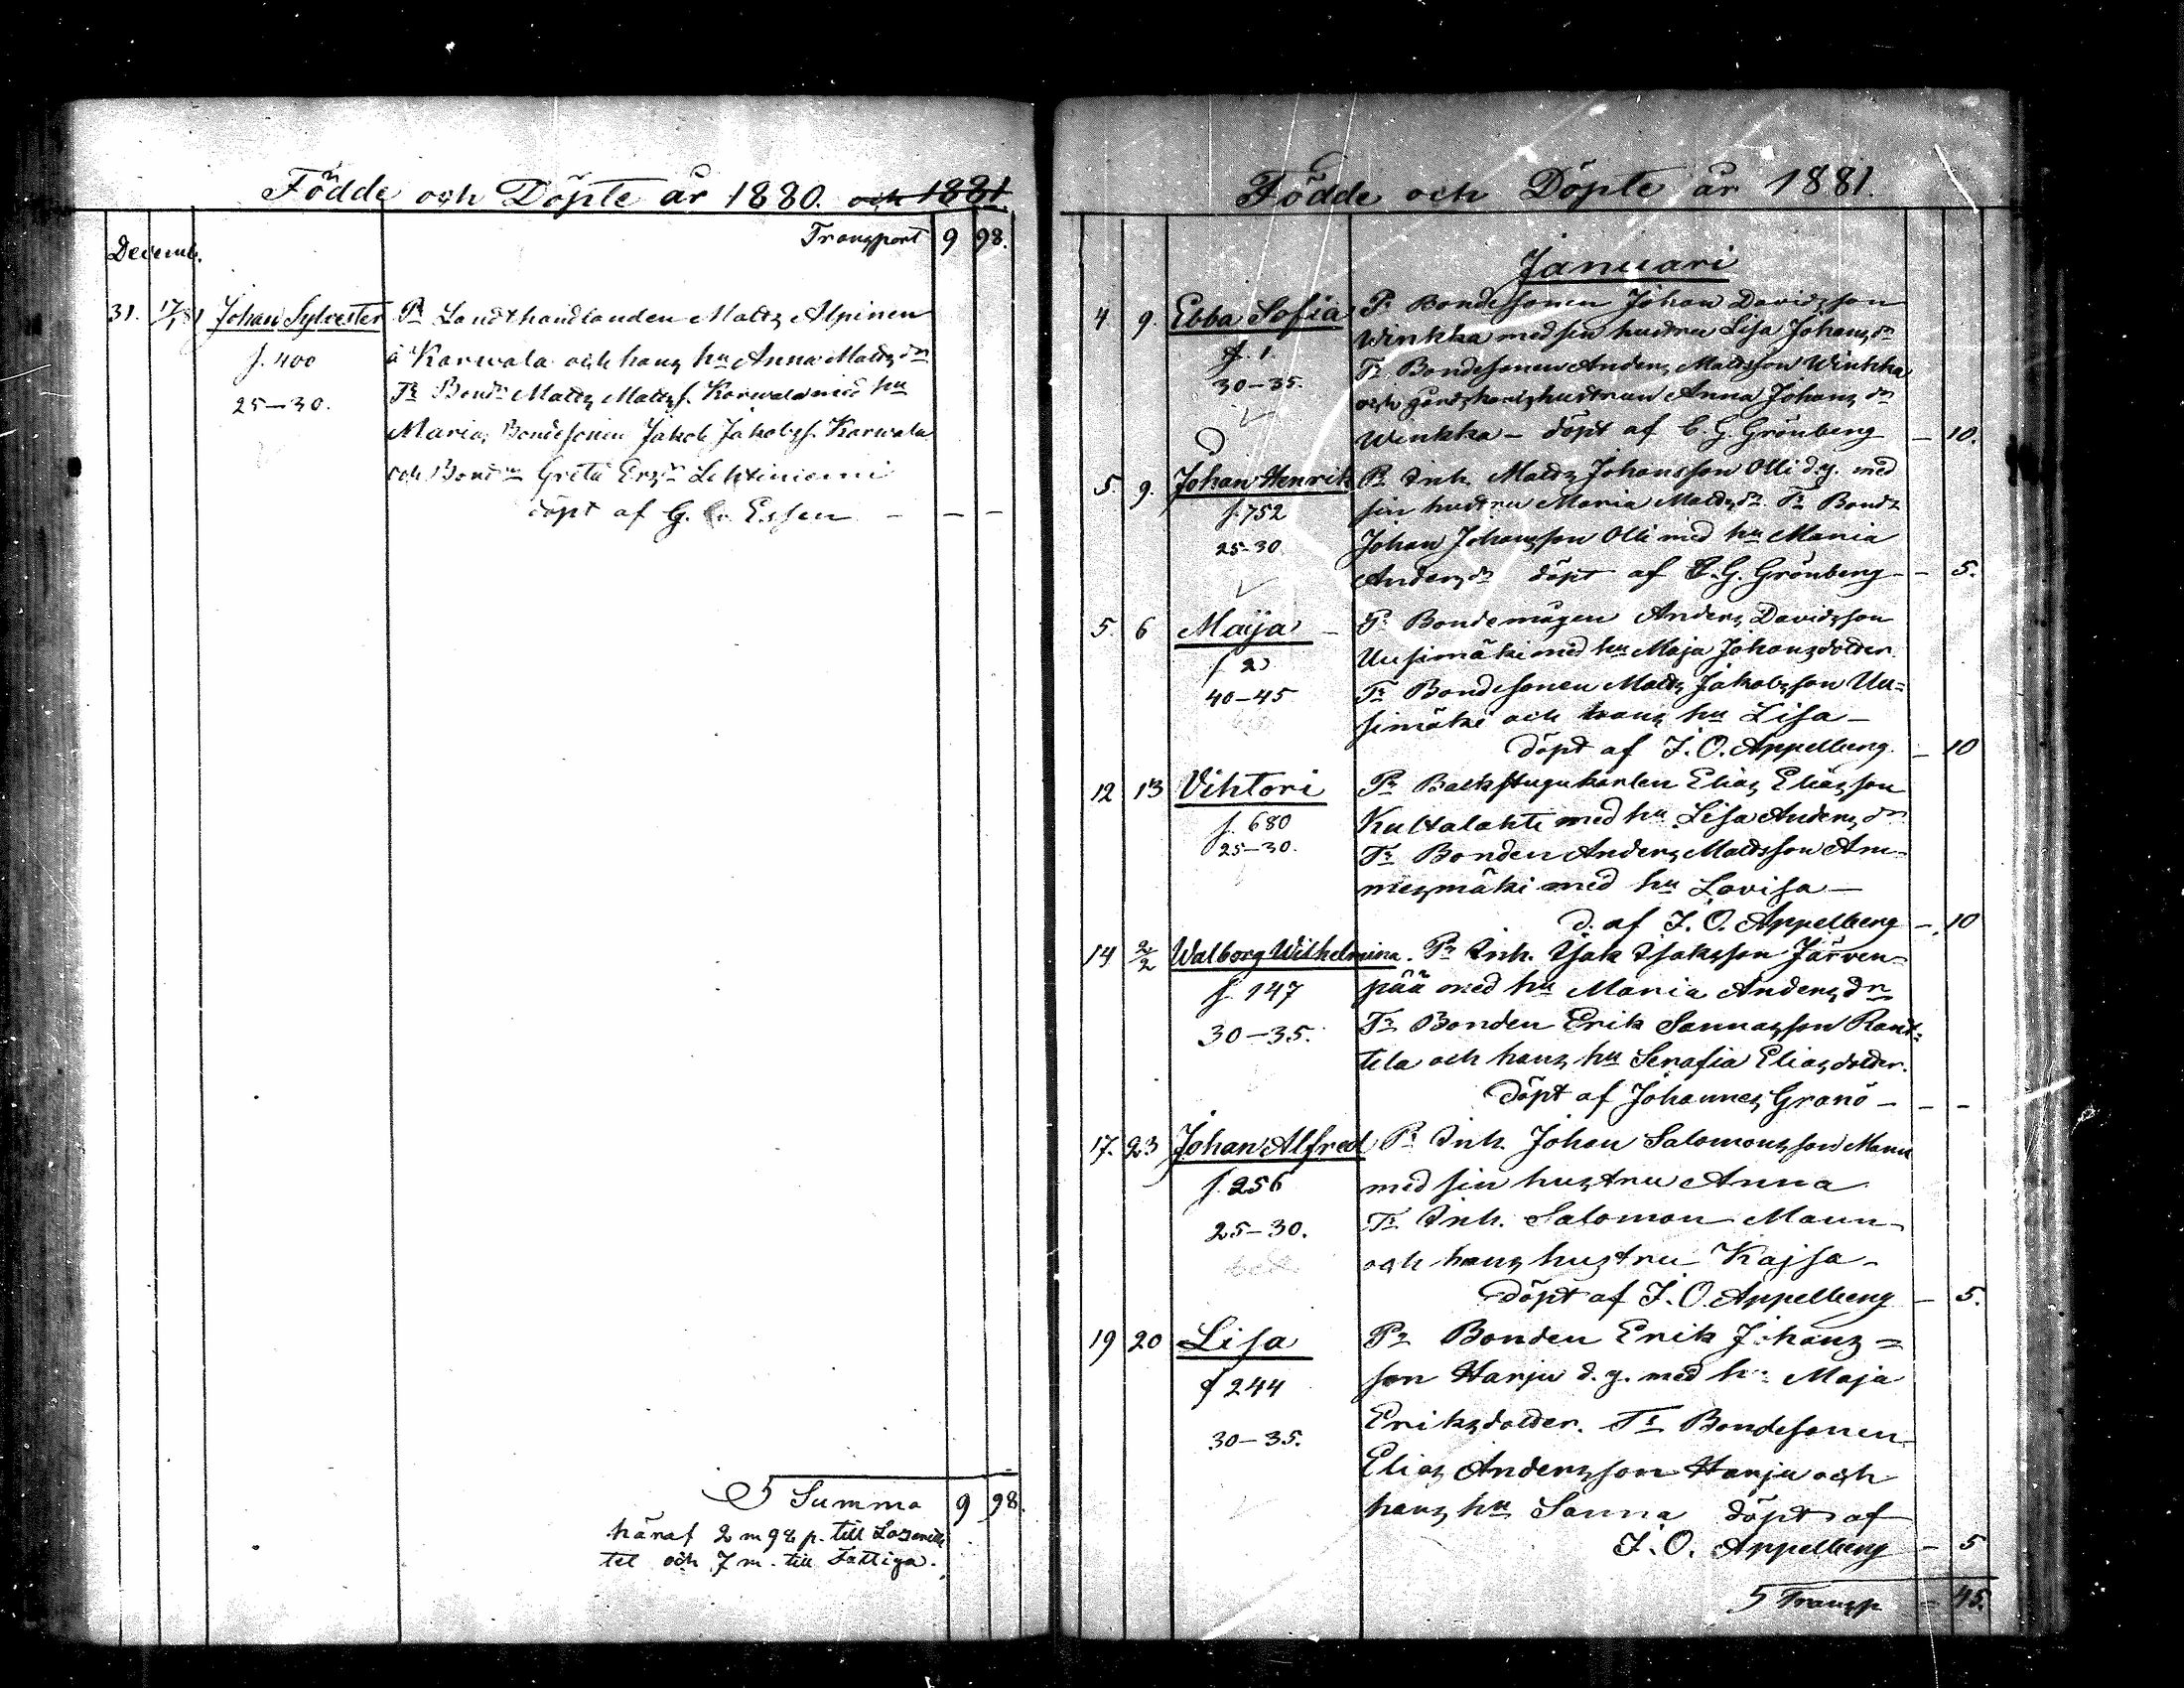 Födde och Döpte år 1880. och 1881.
Decemb.
Transport 9 98.
31. 17/1 81 Johan Sylvester Pr Landthandlanden Matts Alpinen
f. 400 å Karwala och hans hu Anna Matts dr
25-30. Tr Bond. Matts Mattss. Karwala med hu
Maria, Bondesonen Jakob Jakobss. Karwala
och Bond Greta Ers dr Lehtiniemi
döpt af G. v. Essen - - -
5 Summa 9 98.
häraf 2 m 98 p. till Lazarett
tet och 7 m. till Fattiga.
Födde och Döpte år 1881.
Januari
4. 9. Ebba Sofia Pr Bondesonen Johan Davidsson
f. 1. Winkka med sin hustru Lisa Johans dr
30-35. Tr Bondesonen Anders Mattsson Winkka
och hustrun Anna Johans dr
Winkka - döpt af C. G. Grönberg - 10.
5. 9. Johan Henrik Pr Inh. Matts Johansson Olli d.y. med
f. 752 sin hustru Maria Matts dr. Tr Bond
25-30 Johan Johansson Olli med hu Maria
Anders dr döpt af C. G. Grönberg - 5.
5. 6 Maija - Pr Bondemågen Anders Davidsson
f 2 Uusimäki med hu Maja Johansdotter
40-45 Tr Bondesonen Matts Jakobsson Uu=
simäki och hans hu Lisa -
döpt af J. O. Appelberg. - 10
12 13 Vihtori Pr Backstugukarlen Elias Eliasson
f. 680 Kultalahti med hu Lisa Anders dr
25-30. Tr Bonden Anders Mattsson Am-
mesmäki med hu Lovisa -
d. af J. O. Appelberg - 10
14 2/2 Walborg Wilhelmina. Pr Inh. Isak Isaksson Järven-
f. 147 pää med hu Maria Anders dr
30-35. Tr Bonden Erik Sannasson Rant=
tila och hans hu Serafia Eliasdotter.
döpt af Johannes Granö - - -
17. 23 Johan Alfred Pr Inh. Johan Salomonsson Mann
f. 256 med sin hustru Anna
25-30. Tr Inh. Salomon Mann
och hans hustru Kajsa -
döpt af J. O. Appelberg - 5.
19 20 Lisa Pr Bonden Erik Johans=
f 244 son Harju d.y. med hu Maja
30-35. Eriksdotter. Tr Bondesonen
Elias Andersson Harju och
hans hu Sanna döpt af
J. O. Appelberg - 5
5 Transp - 45.